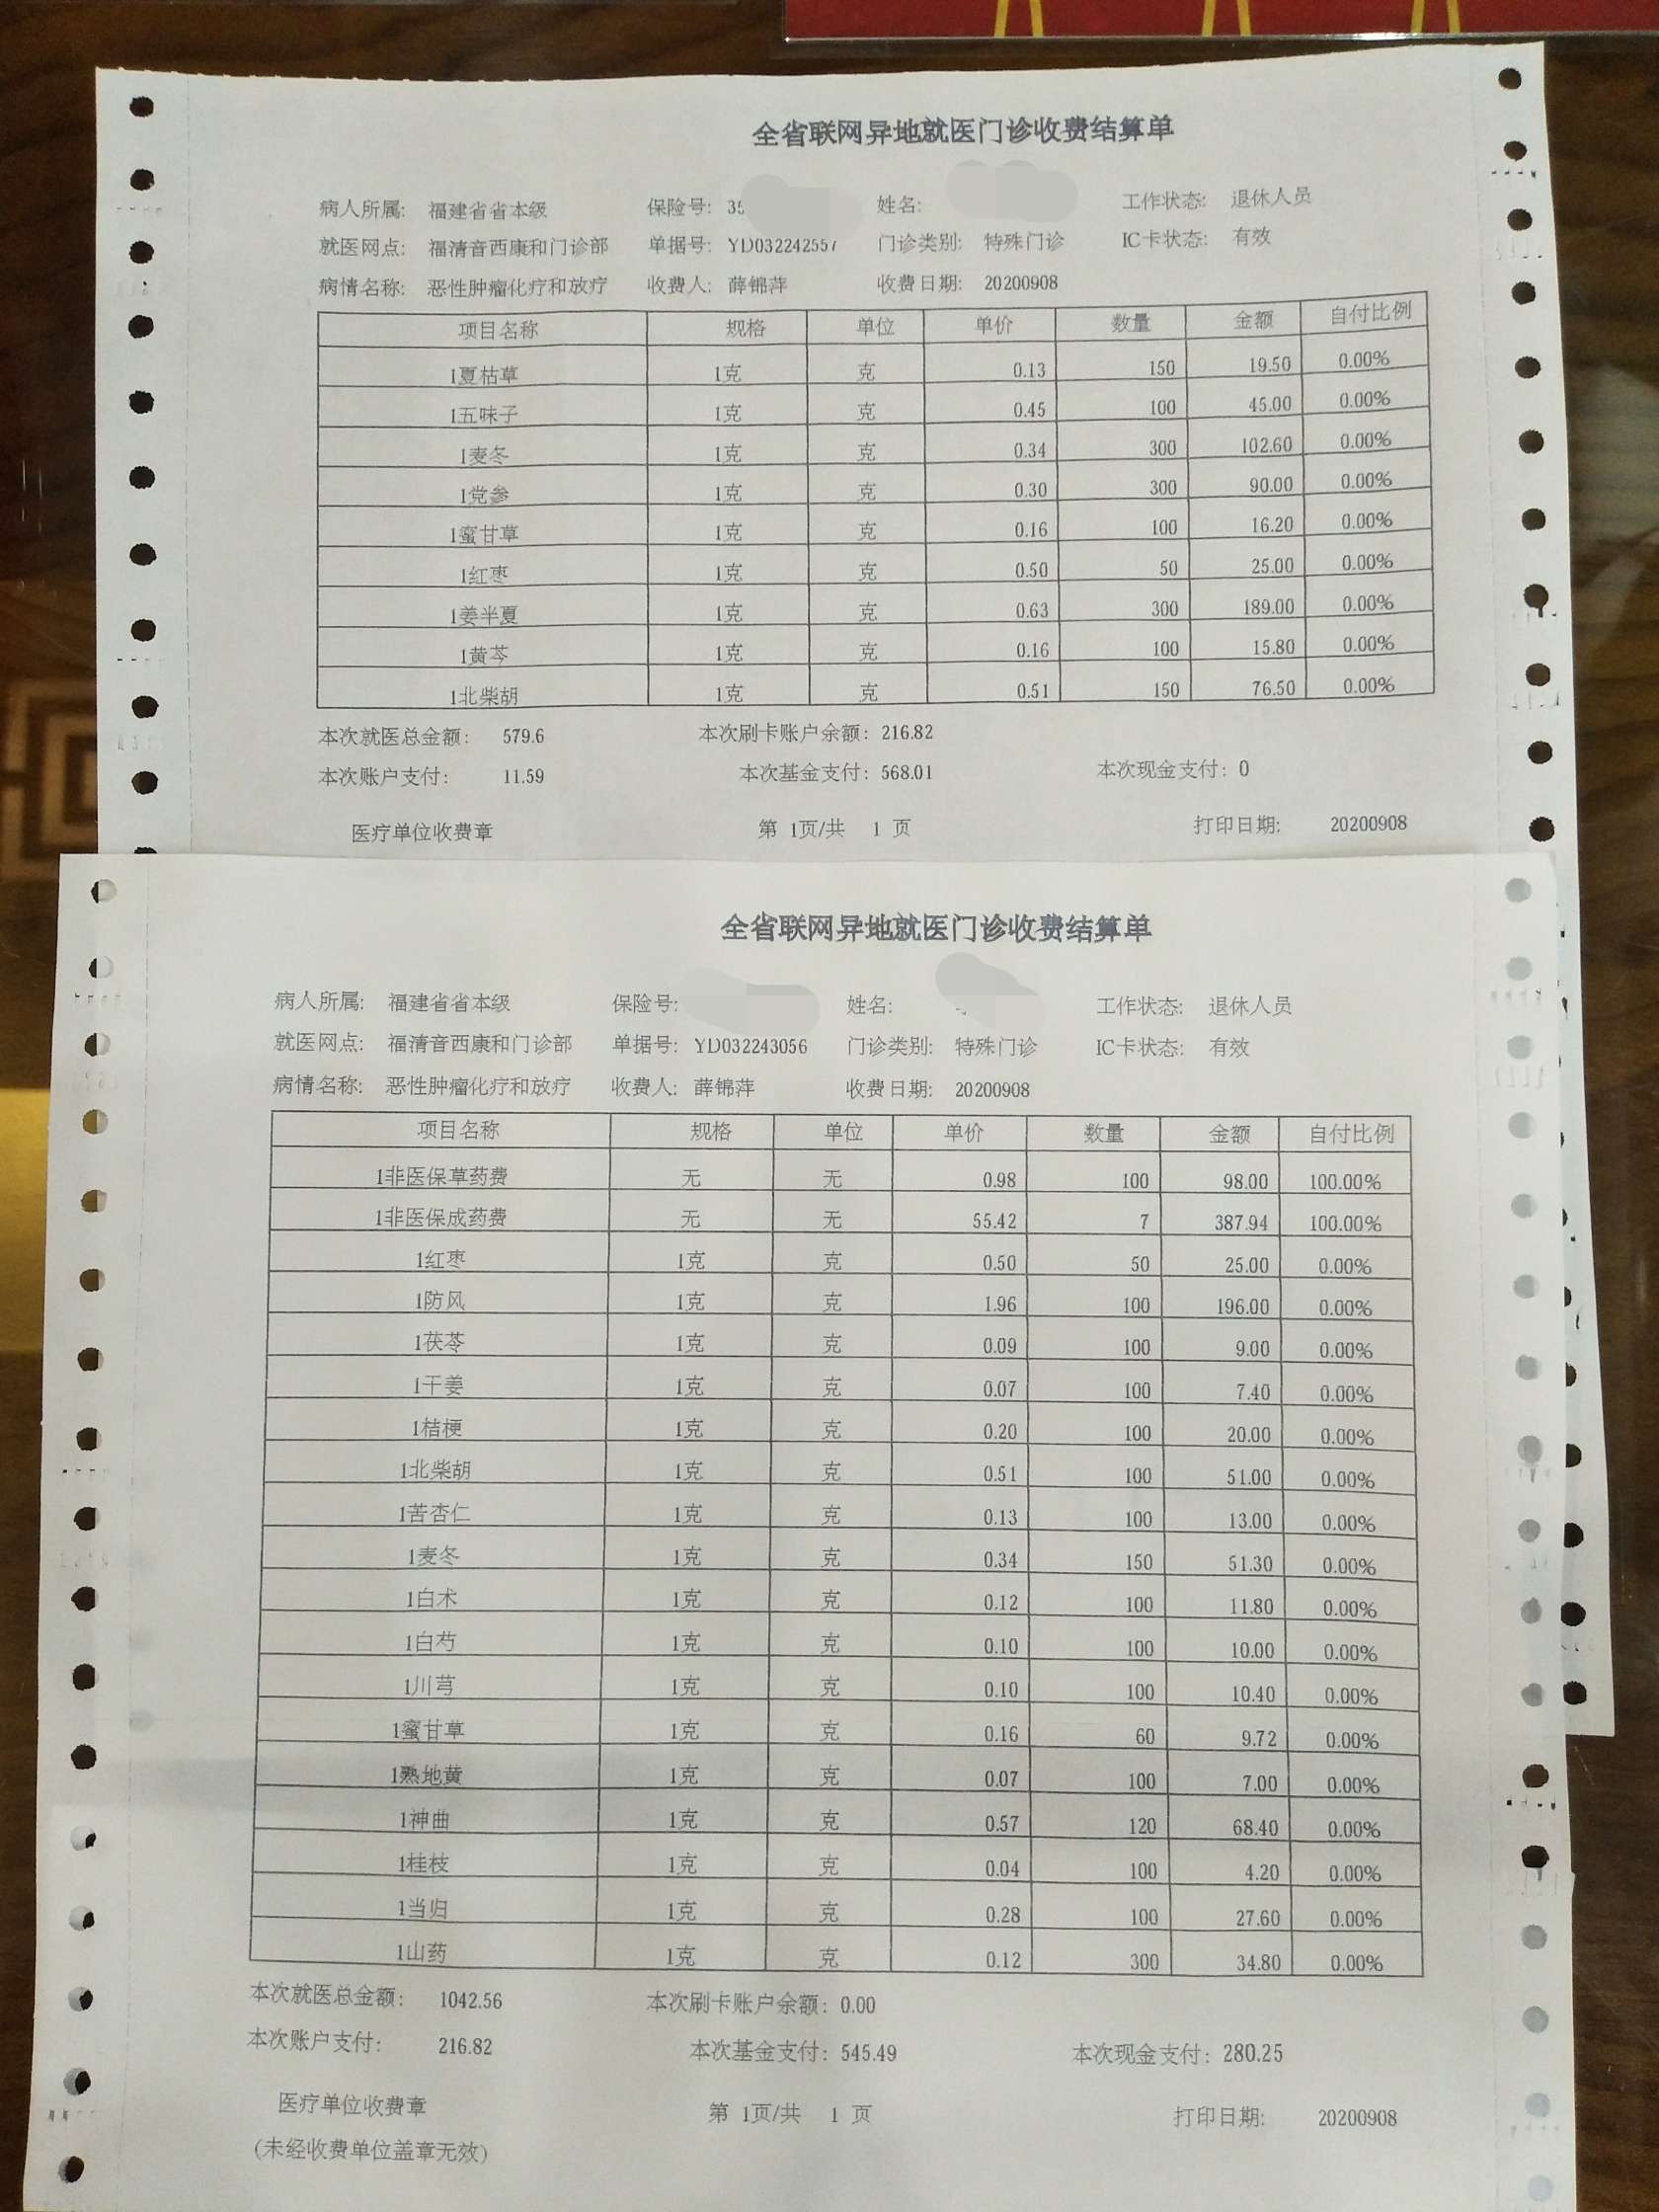 全省联网异地就医门诊收费结算单
病人所属: 福建省省本级 保险号: 35 姓名: 工作状态: 退休人员
就医网点: 福清音西康和门诊部 单据号: YD032242557 门诊类别: 特殊门诊 IC卡状态: 有效
病情名称: 恶性肿瘤化疗和放疗 收费人: 薛锦萍 收费日期: 20200908
项目名称 规格 单位 单价 数量 金额 自付比例
1夏枯草 1克 克 0.13 150 19.50 0.00%
1五味子 1克 克 0.45 100 45.00 0.00%
1麦冬 1克 克 0.34 300 102.60 0.00%
1党参 1克 克 0.30 300 90.00 0.00%
1蜜甘草 1克 克 0.16 100 16.20 0.00%
1红枣 1克 克 0.50 50 25.00 0.00%
1姜半夏 1克 克 0.63 300 189.00 0.00%
1黄芩 1克 克 0.16 100 15.80 0.00%
1北柴胡 1克 克 0.51 150 76.50 0.00%
本次就医总金额: 579.6 本次刷卡账户余额: 216.82
本次账户支付: 11.59 本次基金支付: 568.01 本次现金支付: 0
医疗单位收费章 第 1页/共 1 页 打印日期: 20200908
全省联网异地就医门诊收费结算单
病人所属: 福建省省本级 保险号: 姓名: 工作状态: 退休人员
就医网点: 福清音西康和门诊部 单据号: YD032243056 门诊类别: 特殊门诊 IC卡状态: 有效
病情名称: 恶性肿瘤化疗和放疗 收费人: 薛锦萍 收费日期: 20200908
项目名称 规格 单位 单价 数量 金额 自付比例
1非医保草药费 无 无 0.98 100 98.00 100.00%
1非医保成药费 无 无 55.42 7 387.94 100.00%
1红枣 1克 克 0.50 50 25.00 0.00%
1防风 1克 克 1.96 100 196.00 0.00%
1茯苓 1克 克 0.09 100 9.00 0.00%
1干姜 1克 克 0.07 100 7.40 0.00%
1桔梗 1克 克 0.20 100 20.00 0.00%
1北柴胡 1克 克 0.51 100 51.00 0.00%
1苦杏仁 1克 克 0.13 100 13.00 0.00%
1麦冬 1克 克 0.34 150 51.30 0.00%
1白术 1克 克 0.12 100 11.80 0.00%
1白芍 1克 克 0.10 100 10.00 0.00%
1川芎 1克 克 0.10 100 10.40 0.00%
1蜜甘草 1克 克 0.16 60 9.72 0.00%
1熟地黄 1克 克 0.07 100 7.00 0.00%
1神曲 1克 克 0.57 120 68.40 0.00%
1桂枝 1克 克 0.04 100 4.20 0.00%
1当归 1克 克 0.28 100 27.60 0.00%
1山药 1克 克 0.12 300 34.80 0.00%
本次就医总金额: 1042.56 本次刷卡账户余额: 0.00
本次账户支付: 216.82 本次基金支付: 545.49 本次现金支付: 280.25
医疗单位收费章 第 1页/共 1 页 打印日期: 20200908
(未经收费单位盖章无效)